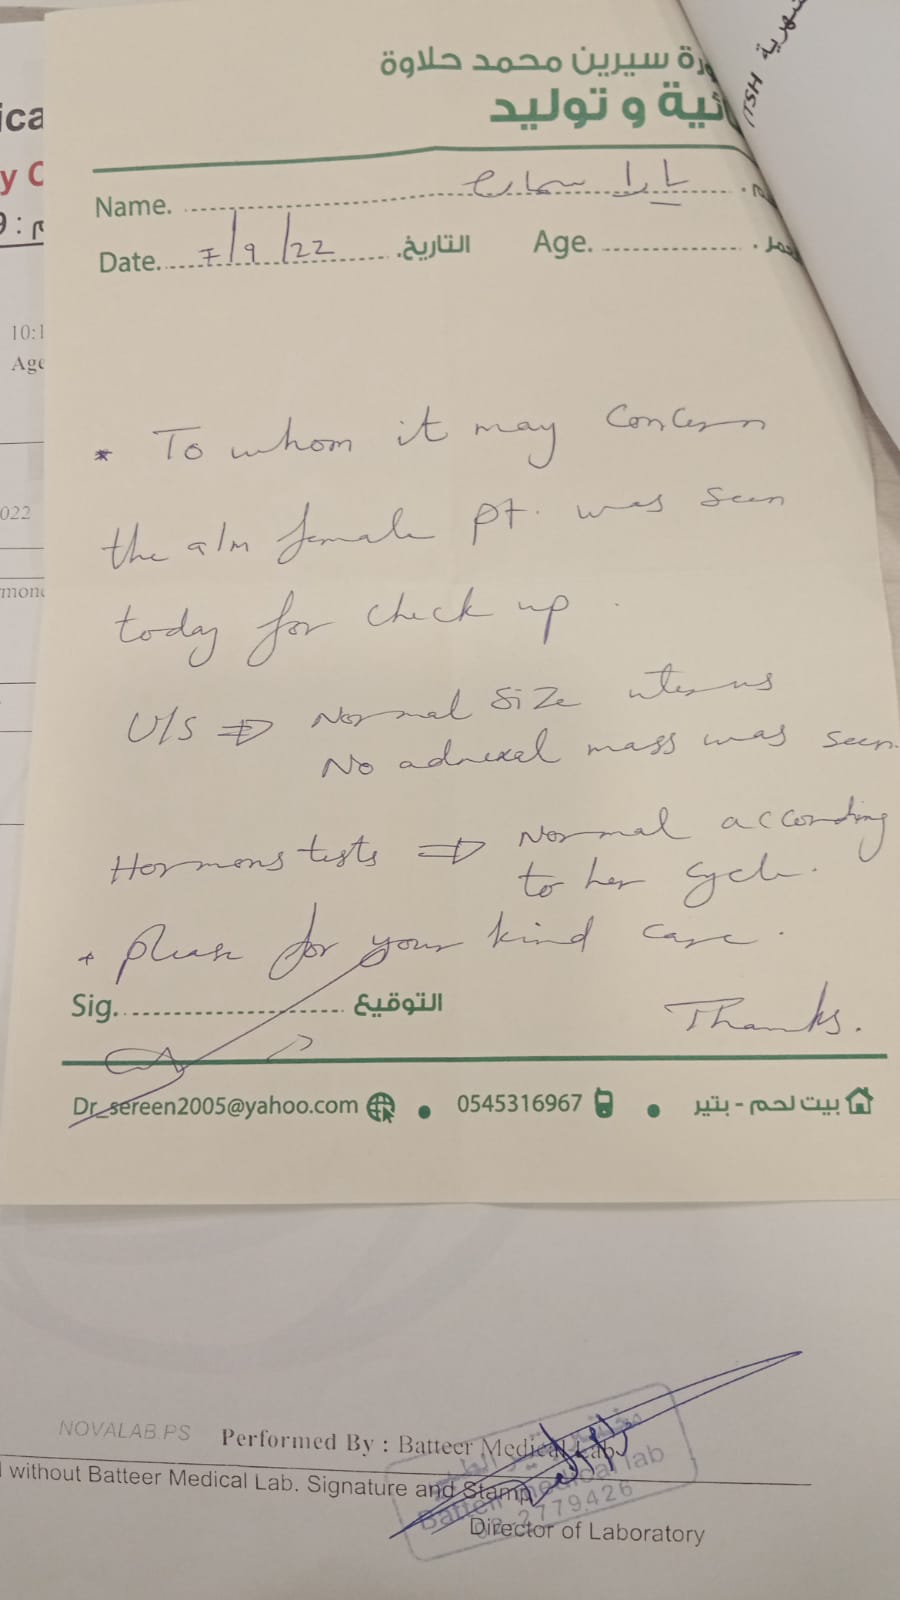 سيرين محمد حلاوة
ئية و توليد
Name.
Date. 7/9/22 التاريخ. Age.
* To whom it may concern
the a/m female pt. was seen
today for check up.
U/S ⇒ Normal size uterus
No adnexal mass was seen.
Hormons tests ⇒ Normal according
to her cycle.
* please for your kind care.
Thanks.
Sig. التوقيع
Dr_sereen2005@yahoo.com • 0545316967 • بيت لحم - بتير
ica
y C
10:1
Age
022
mone
TSH
NOVALAB.PS Performed By : Batteer Medical Lab
without Batteer Medical Lab. Signature and Stamp
Batteer medical lab
2779426
Director of Laboratory